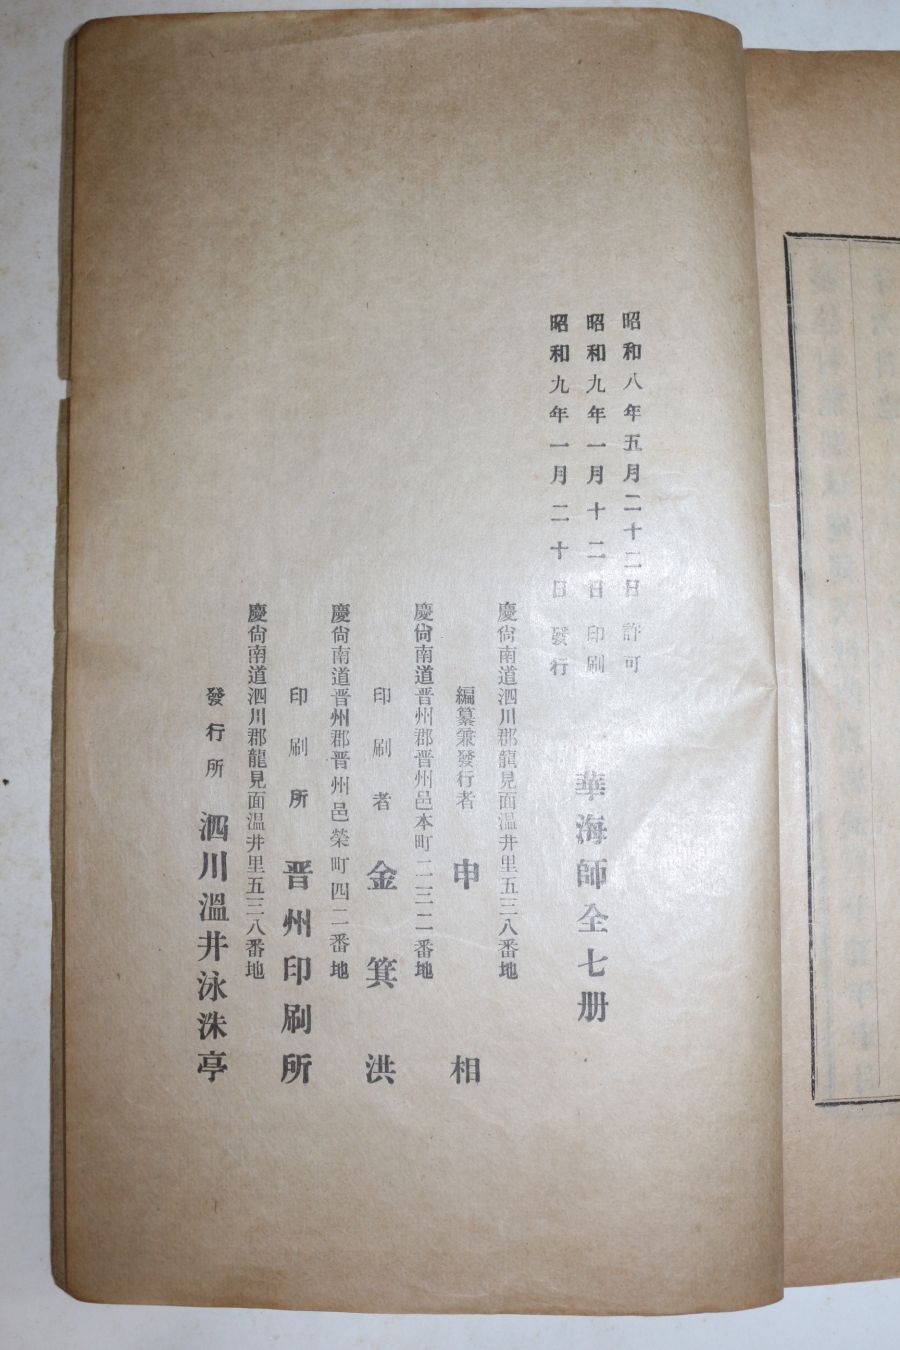 昭和八年五月二十二日 許可
昭和九年一月十二日 印刷
昭和九年一月二十日 發行
華海師全七册
慶尙南道泗川郡龍見面温井里五三八番地
編纂兼發行者 申相
慶尙南道晋州郡晋州邑本町二三二番地
印刷者 金箕洪
慶尙南道晋州郡晋州邑榮町四二番地
印刷所 晋州印刷所
慶尙南道泗川郡龍見面温井里五三八番地
發行所 泗川溫井泳洙亭